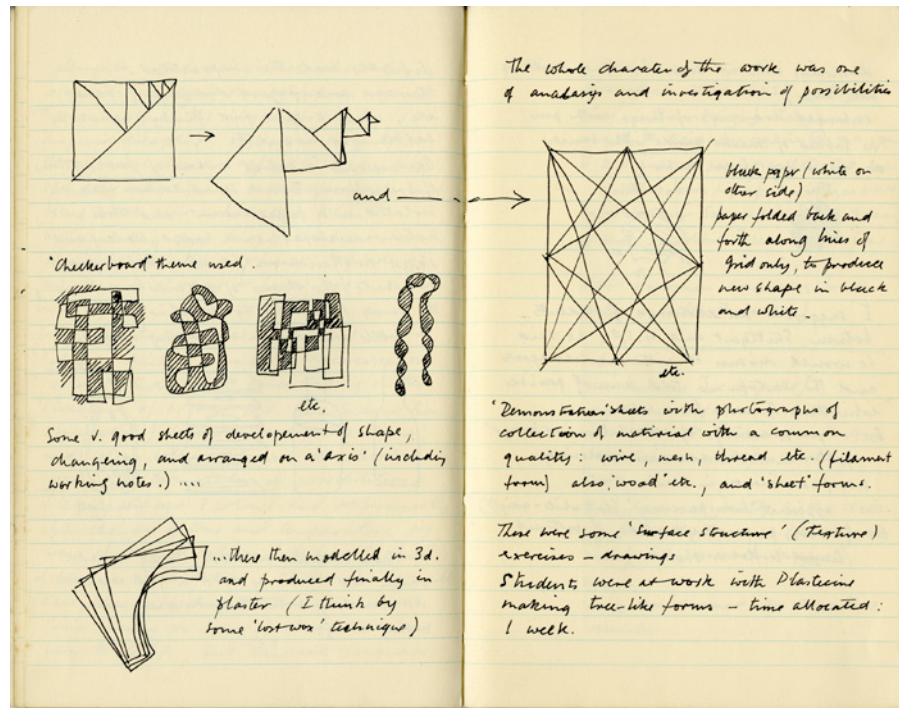 and
"Checkerboard" theme used.
etc.
Some v. good sheets of developement of shape,
changeing, and arranged on a 'axis' (including
working notes.) ....
...there then modelled in 3d.
and produced finally in
plaster (I think by
some 'lost wax' technique)
The whole charater of the work was one
of analasys and investigation of possibilities
black paper (white on
other side)
paper folded back and
forth along lines of
grid only, to produce
new shape in black
and white.
etc.
'Demonstration' sheets with photographs of
collection of material with a common
quality: wire, mesh, thread etc. (filament
form) also, 'wood' etc., and 'sheet' forms.
There were some 'Surface Structure' (texture)
exercises – drawings
Students were at work with Plastecine
making tree-like forms – time allocated:
1 week.